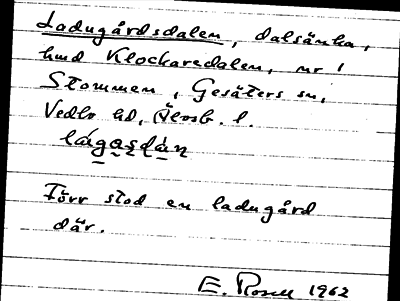 Ladugårdsdalen, dalsänka,
hmd Klockaredalen, nr 1
Stommen, Gesäters sn,
Vedbo hd, Älvsb. l.
lágasdán
Förr stod en ladugård
där.
E. Rosell 1962